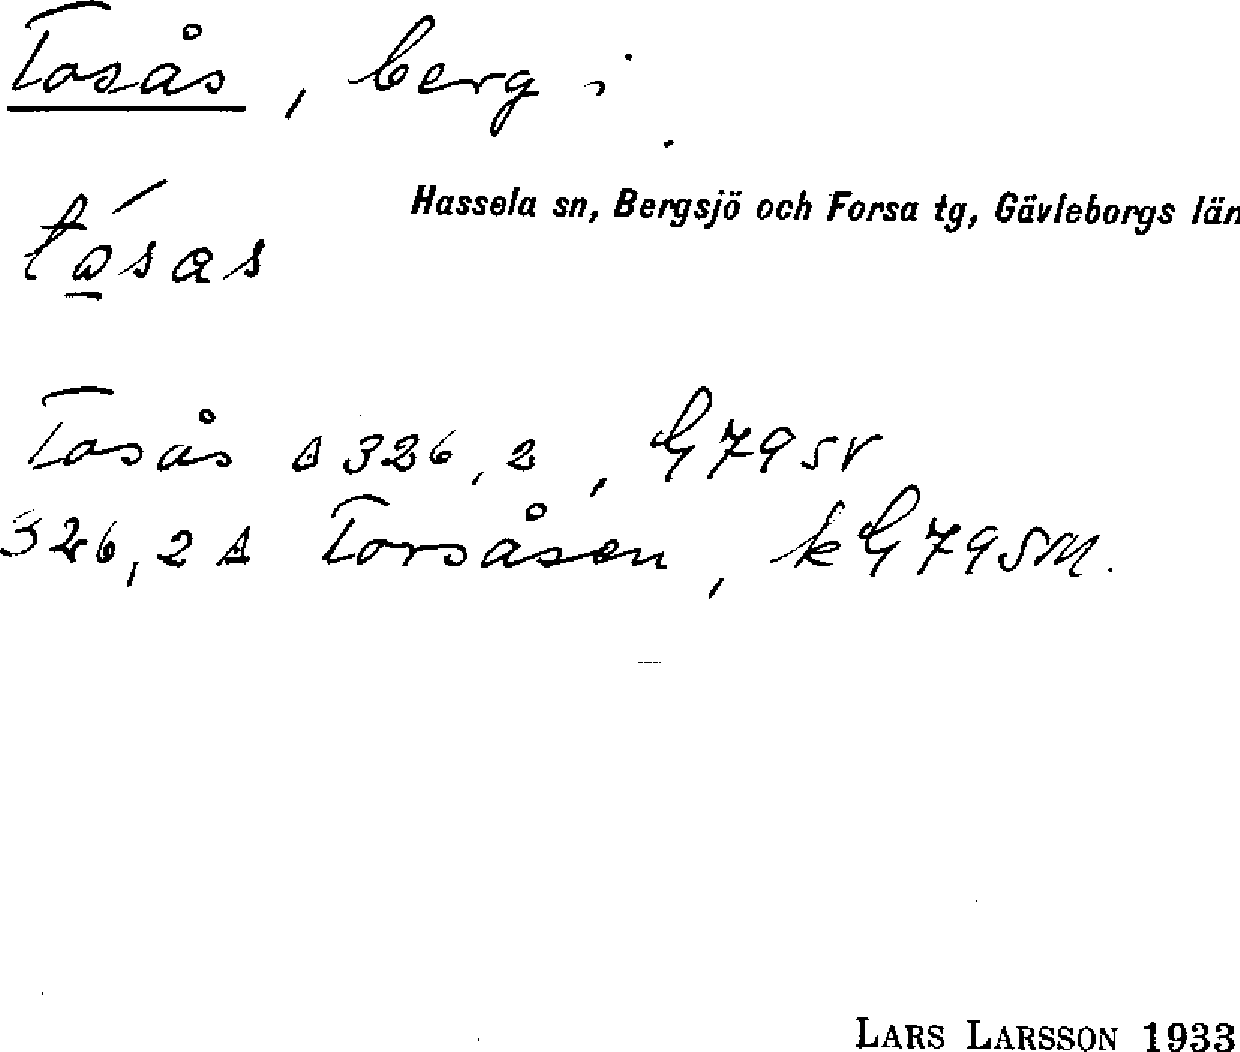 Tosås, berg i
Hassela sn, Bergsjö och Forsa tg, Gävleborgs län
Tosås △ 326,2, G79SV
326,2 △ Torsåsen, kG79SM.
LARS LARSSON 1933